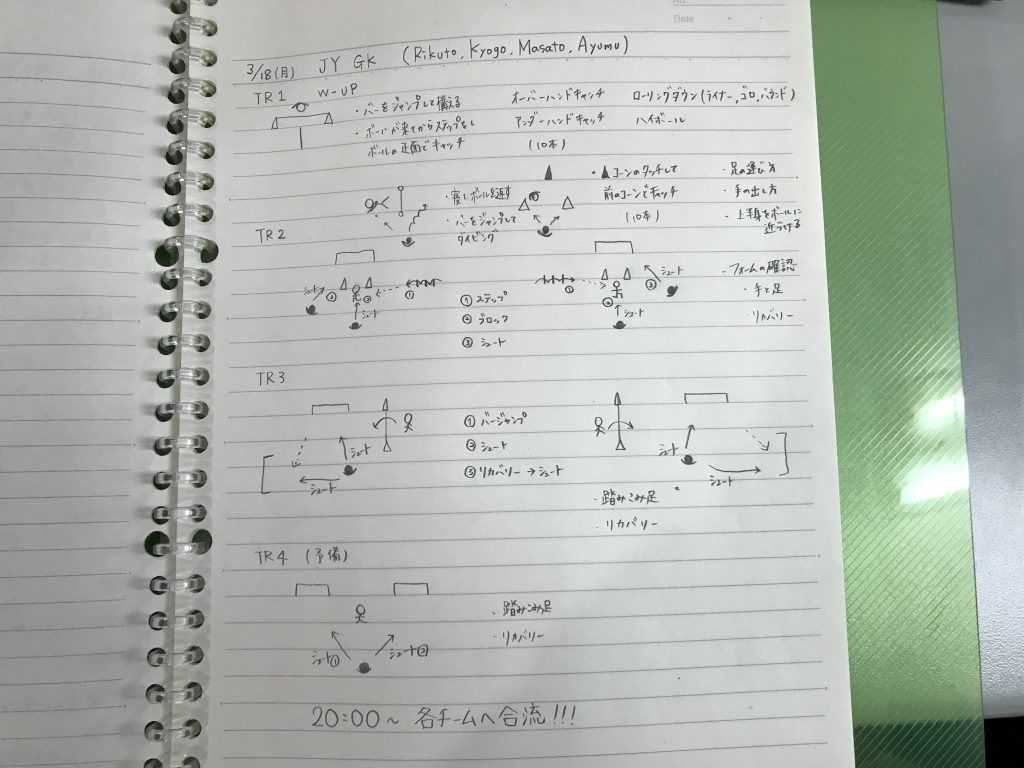 No.
Date
3/18(月) JY GK (Rikuto, Kyogo, Masato, Ayumu)
TR1 W-UP
・バーをジャンプして構える
・ボールが来てからステップをし
ボールの正面でキャッチ
オーバーハンドキャッチ
アンダーハンドキャッチ
(10本)
ローリングダウン(ライナー,ゴロ,バウンド)
ハイボール
・寝てボールを返す
・バーをジャンプして
ダイビング
・▲コーンのタッチして
前のコーンでキャッチ
(10本)
・足の運び方
・手の出し方
・上半身をボールに
近づける
TR2
シュート
③
②
①
シュート
①ステップ
②ブロック
③シュート
①
②
③
シュート
シュート
・フォームの確認
・手と足
・リカバリー
TR3
シュート
シュート
①バージャンプ
②シュート
③リカバリー→シュート
シュート
シュート
・踏みこみ足
・リカバリー
TR4 (予備)
シュート①
シュート②
・踏みこみ足
・リカバリー
20:00~ 各チームへ合流!!!